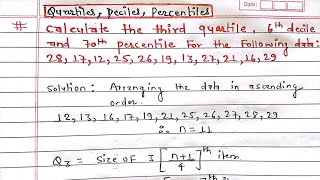 Quartiles, Deciles, Percentiles
Date:
# Calculate the third quartile, 6th decile
and 70th percentile for the following data:
28, 17, 12, 25, 26, 19, 13, 27, 21, 16, 29
Solution: Arranging the data in ascending
order:
12, 13, 16, 17, 19, 21, 25, 26, 27, 28, 29
∴ n = 11
Q3 = Size of 3 [n+1/4]th item